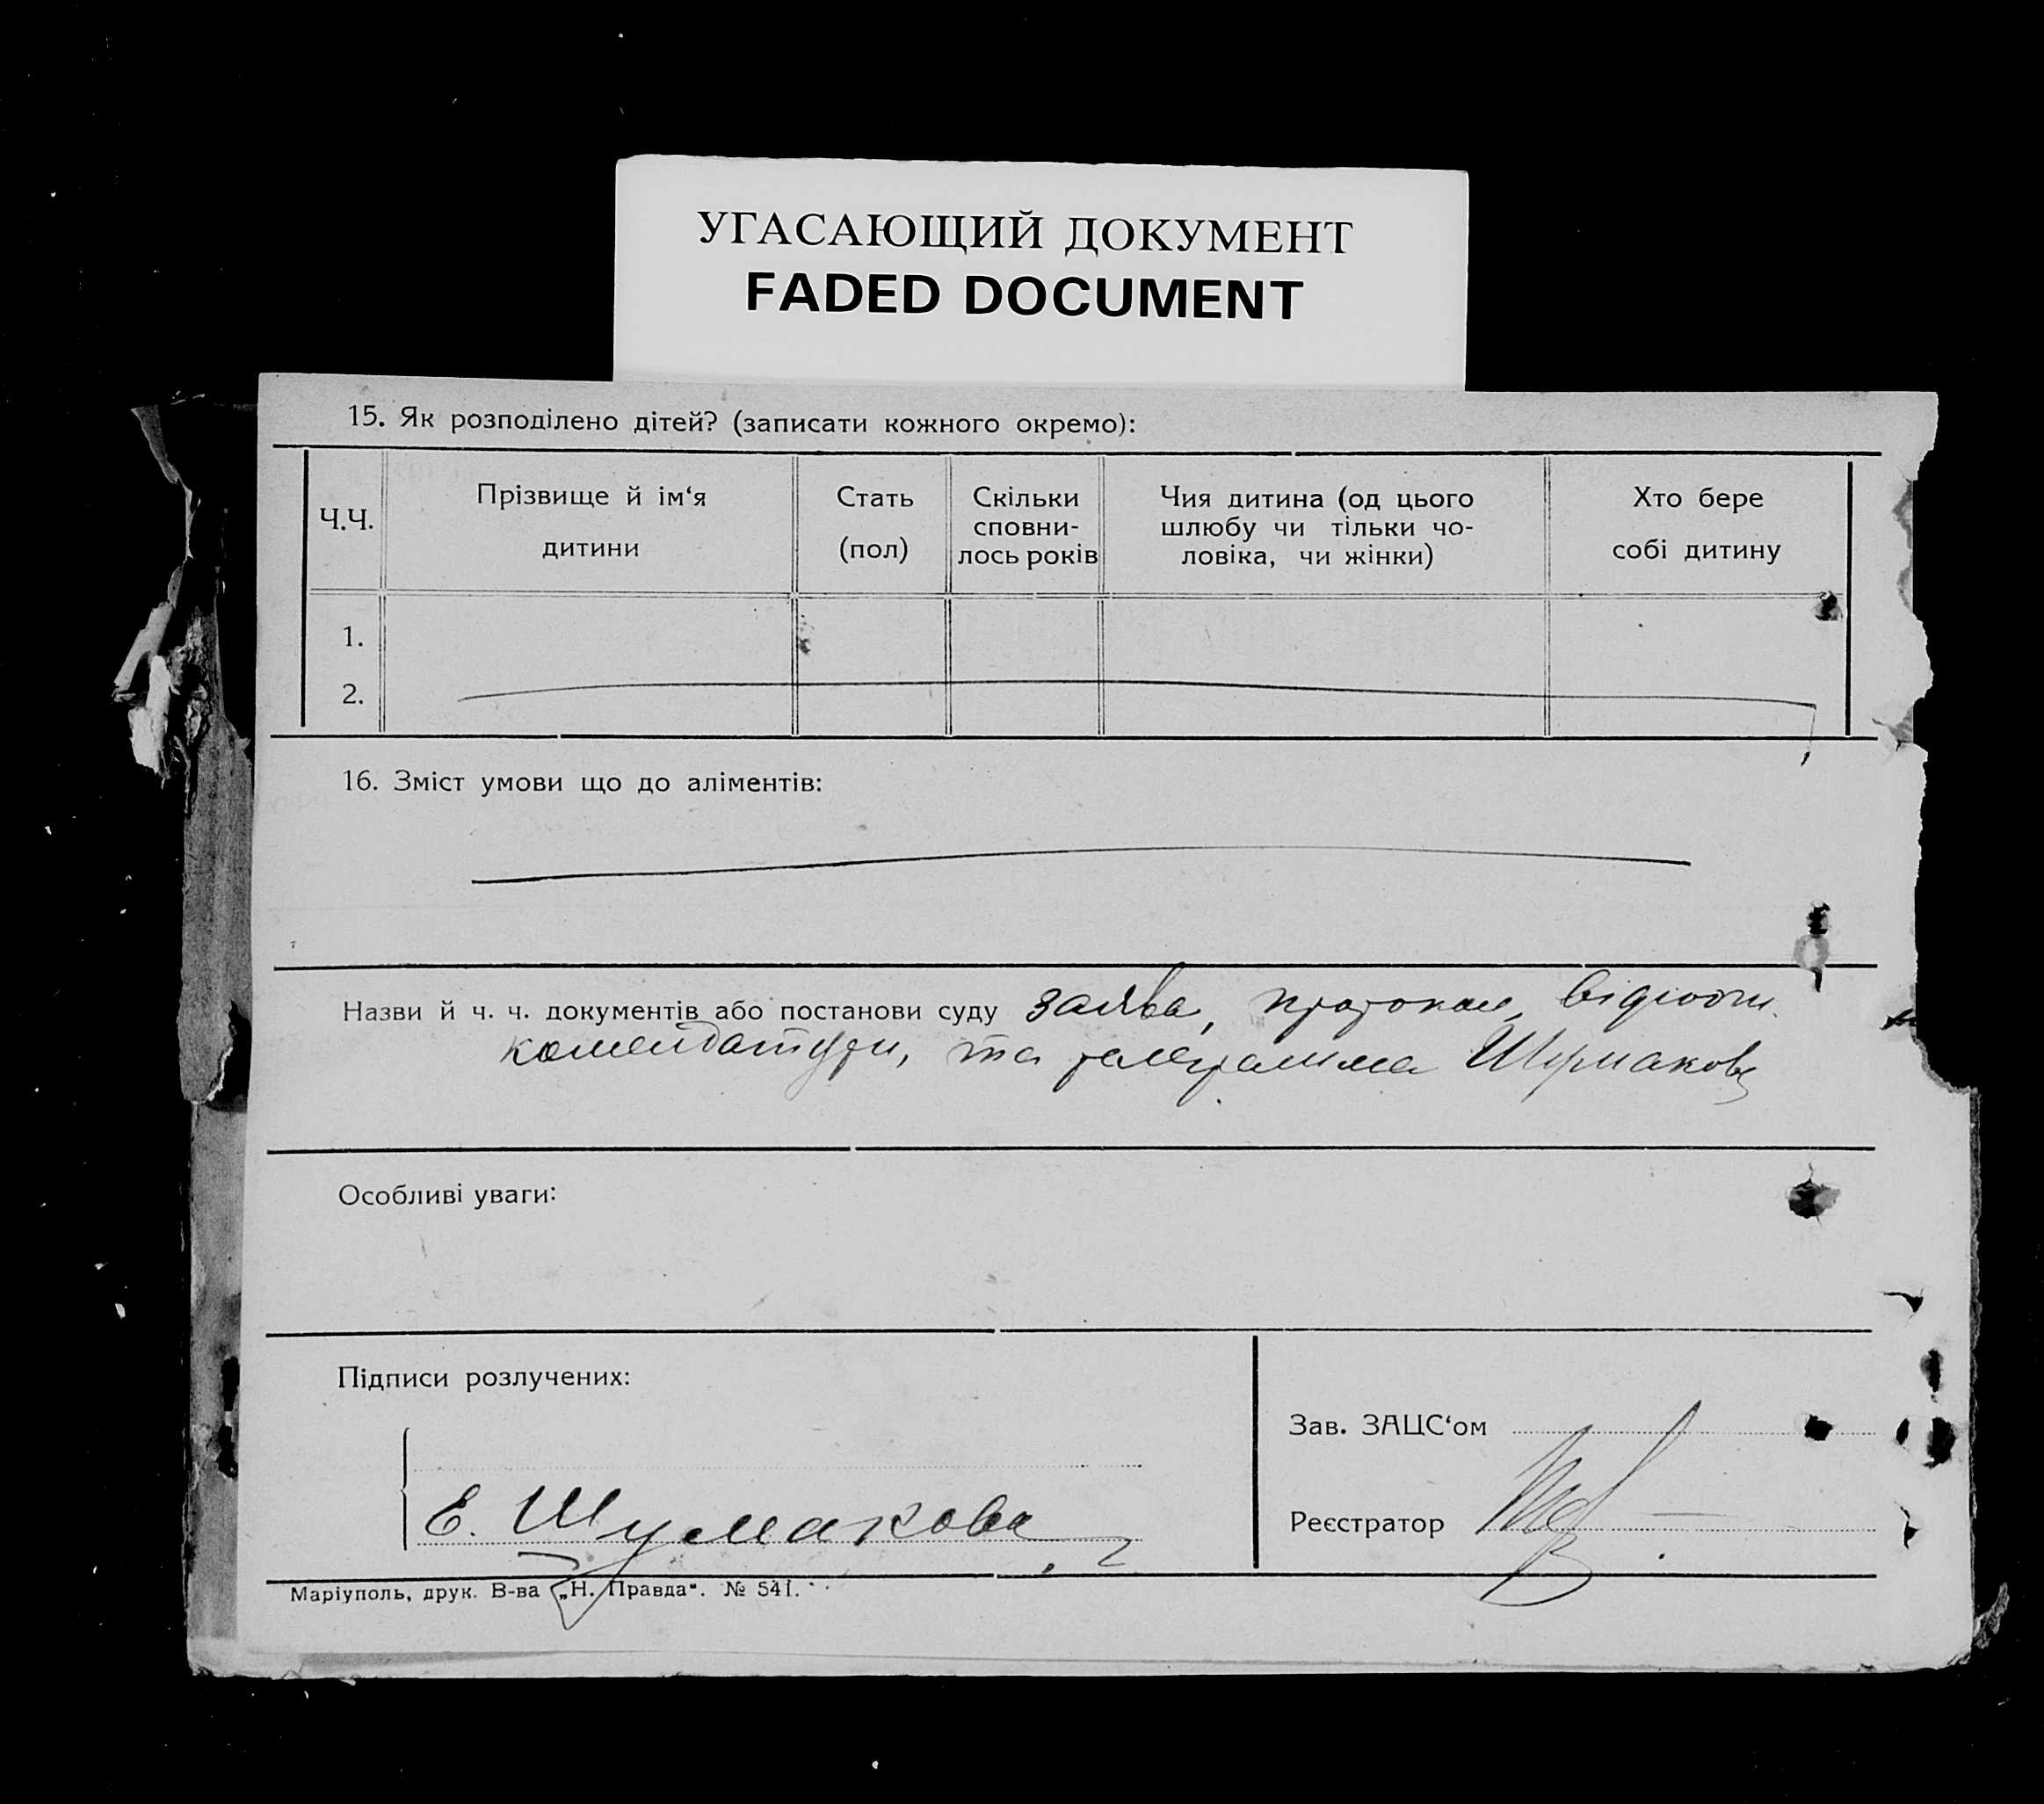 УГАСАЮЩИЙ ДОКУМЕНТ
FADED DOCUMENT
15. Як розподілено дітей? (записати кожного окремо):
Ч.Ч.
Прізвище й ім‘я
дитини
Стать
(пол)
Скільки
сповни-
лось років
Чия дитина (од цього
шлюбу чи тільки чо-
ловіка, чи жінки)
Хто бере
собі дитину
1.
2.
16. Зміст умови що до аліментів:
Назви й ч. ч. документів або постанови суду заява, протокол,
комендатури, та телеграмма Шумакова
Особливі уваги:
Підписи розлучених:
Е. Шумакова
Зав. ЗАЦС‘ом
Реєстратор
Маріуполь, друк. В-ва „Н. Правда“. № 541.